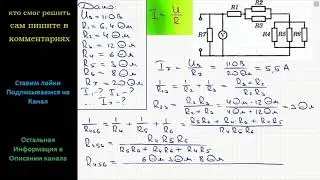 кто смог решить
сам пишите в
комментариях
Ставим лайки
Подписываемся на
Канал
Остальная
Информация в
Описании канала
Дано:
U₃ = 110В
R₁ = 6,4 Ом
R₂ = 4 Ом
R₃ = 12 Ом
R₄ = 6 Ом
R₅ = 3 Ом
R₆ = 8 Ом
R₇ = 20 Ом
I₁-? I₂-?
I = U/R
R1
R2
R3
R4
R5
R6
R7
V
I₇ = U₃/R₇ = 110В/20 Ом = 5,5 А
1/R₂₃ = 1/R₂ + 1/R₃ = (R₂+R₃)/(R₂R₃)
R₂₃ = R₂R₃/(R₂+R₃) = 4 Ом·12 Ом/(4 Ом+12 Ом) = 3 Ом
1/R₄₅₆ = 1/R₄ + 1/R₅ + 1/R₆ = (R₅R₆+R₄R₆+R₄R₅)/(R₄R₅R₆)
R₄₅₆ = R₄R₅R₆/(R₅R₆+R₄R₆+R₄R₅)
R₄₅₆ = 6 Ом·3 Ом·8 Ом